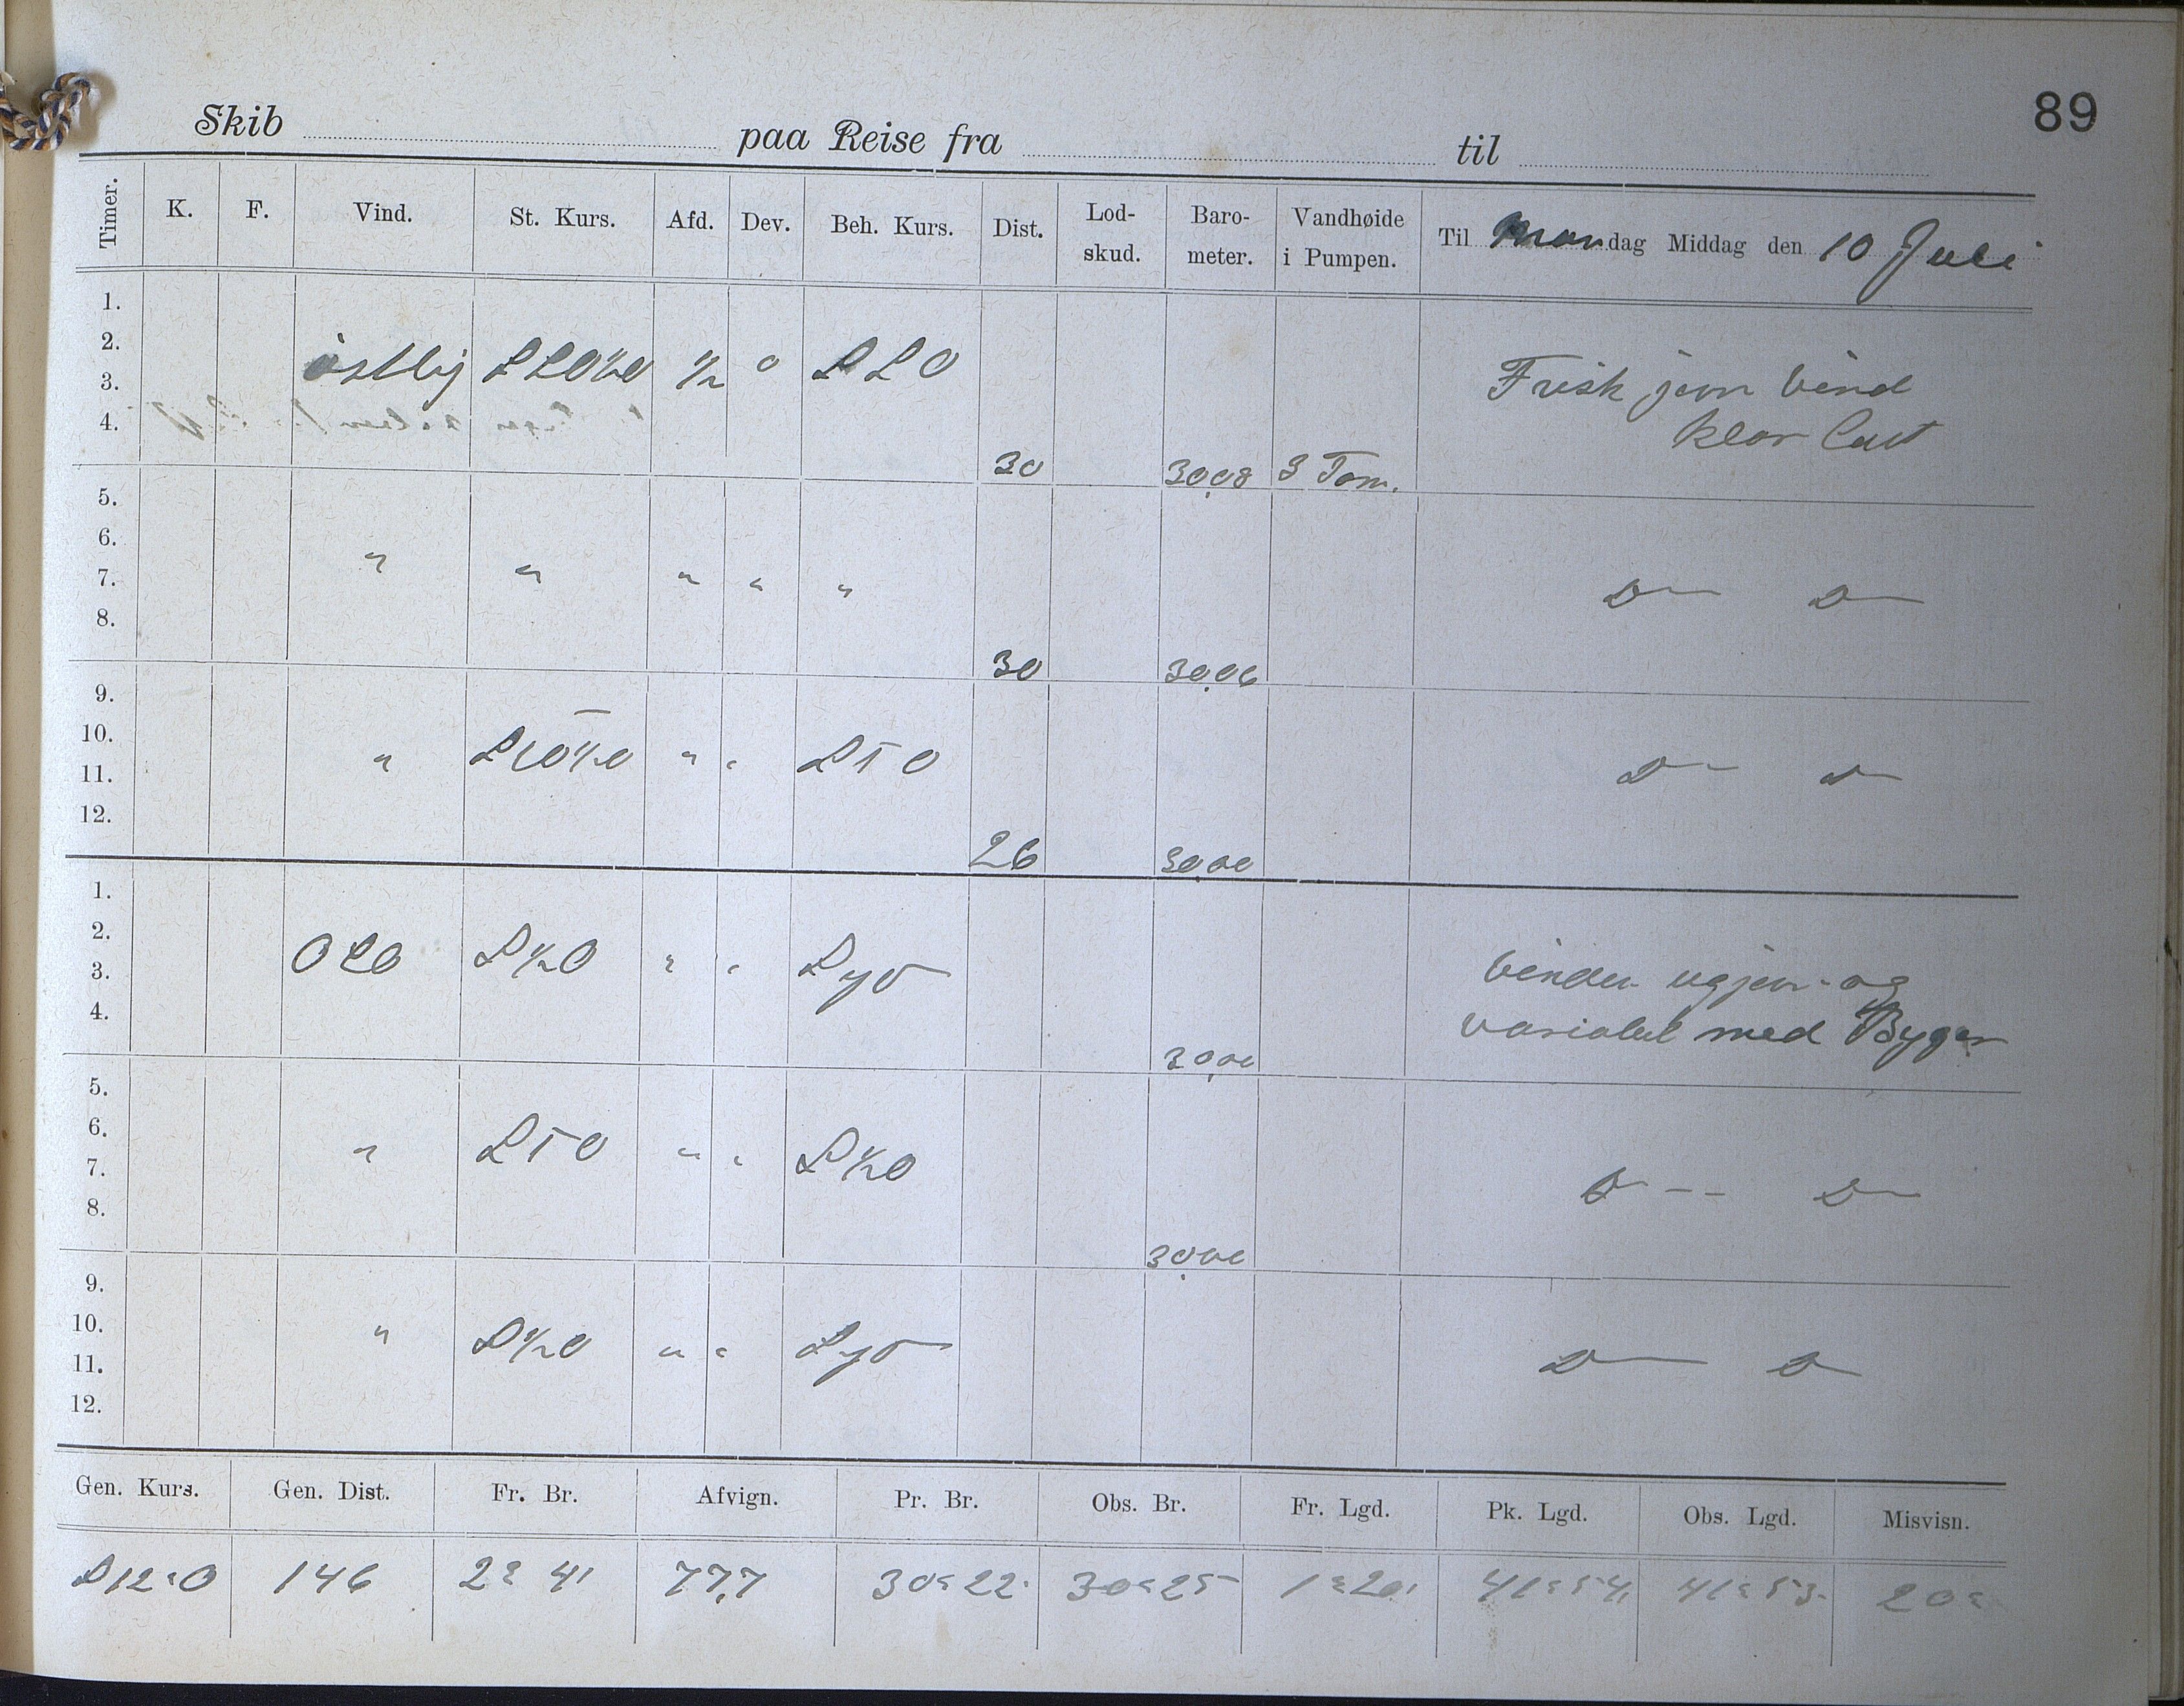 89
Skib paa Reise fra til
Timer. K. F. Vind. St. Kurs. Afd. Dev. Beh. Kurs. Dist. Lod-skud. Baro-meter. Vandhøide i Pumpen. Til Mandag Middag den 10 Juli
1.
2.
3. östlig SSO½O ½ 0 SSO Frisk jevn Vind
4. klar Luft
30 30,08 3 Tom.
5.
6.
7. " " " " " D— D—
8.
30 30,06
9.
10.
11. " " " StO D— D—
12.
26 30,00
1.
2.
3. OSO S½O " " Syd Vinden ugjevn og
4. variabel med Byger
30,00
5.
6.
7. " StO " " S½O D— D—
8.
30,00
9.
10.
11. " S½O " " Syd D— D—
12.
Gen. Kurs. Gen. Dist. Fr. Br. Afvign. Pr. Br. Obs. Br. Fr. Lgd. Pk. Lgd. Obs. Lgd. Misvisn.
S12°O 146 2° 41 77,7 30° 22' 30° 25 1° 20' 41° 54' 41° 53' 20°